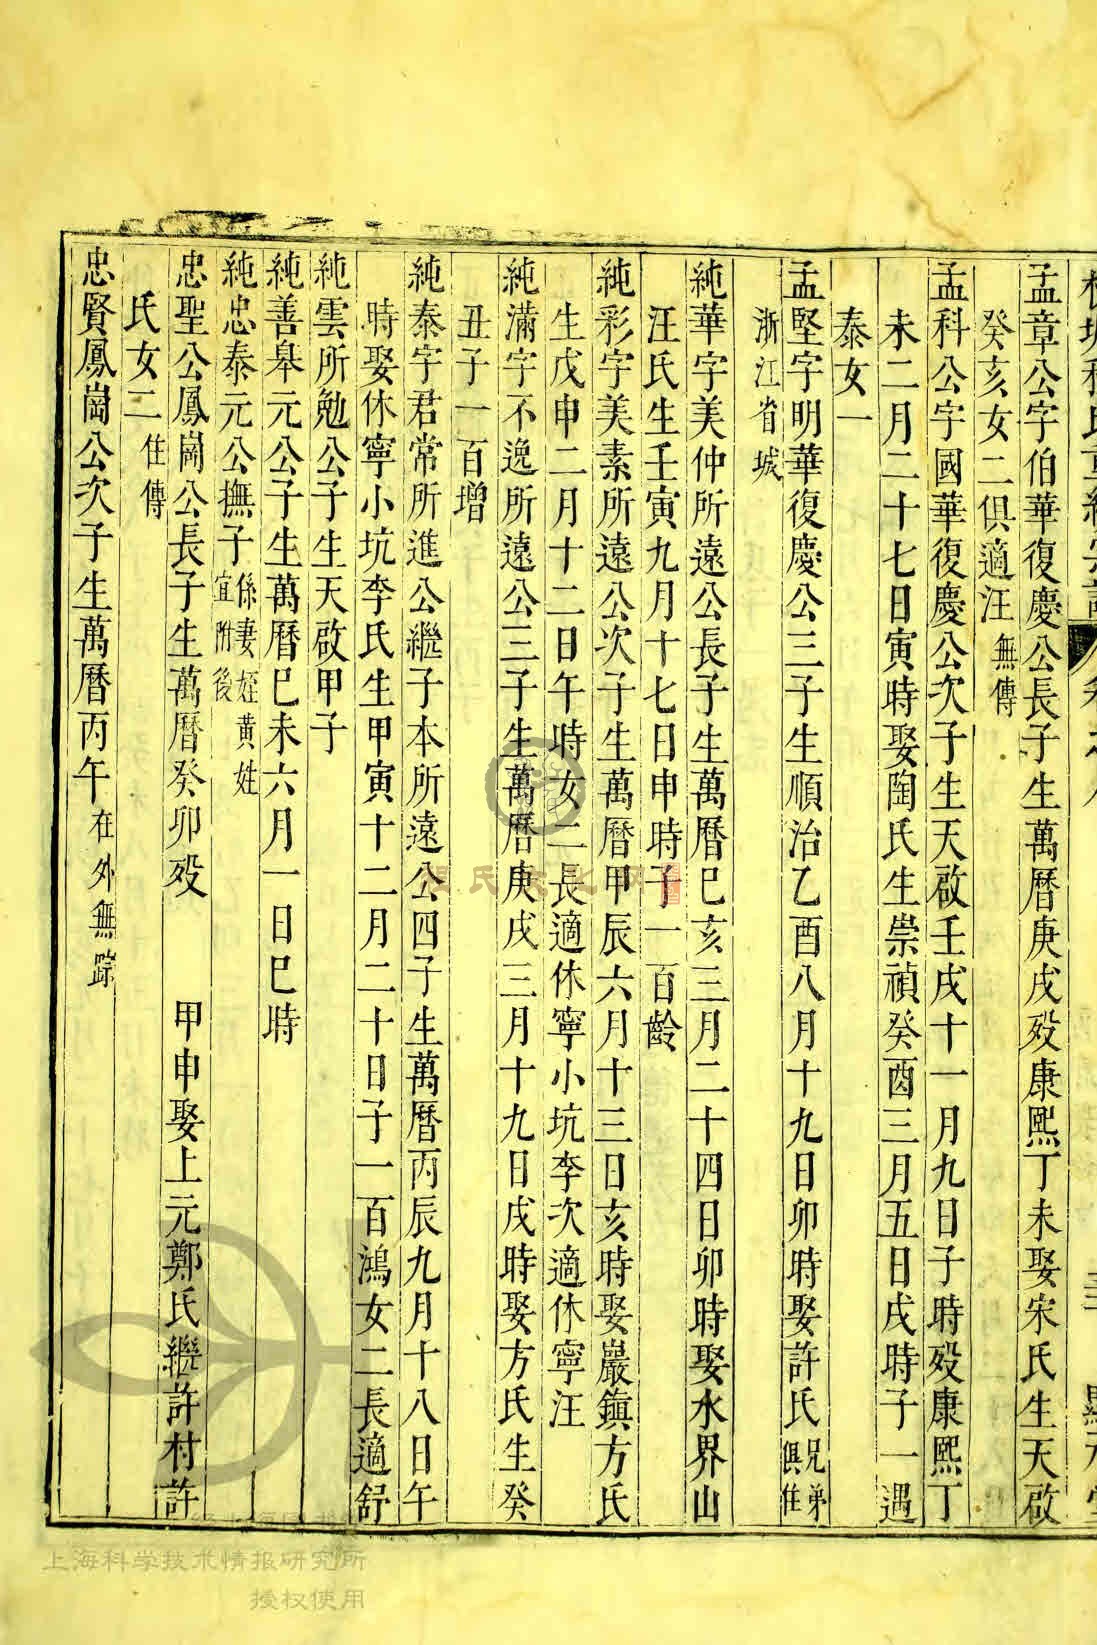 孟章公字伯華復慶公長子生萬曆庚戌歿康熙丁未娶宋氏生天啟
癸亥女二俱適汪無傳
孟科公字國華復慶公次子生天啟壬戌十一月九日子時歿康熙丁
未二月二十七日寅時娶陶氏生崇禎癸酉三月五日戌時子一遇
泰女一
孟堅字明華復慶公三子生順治乙酉八月十九日卯時娶許氏兄弟俱住
浙江省城
純華字美仲所遠公長子生萬曆己亥三月二十四日卯時娶水界山
汪氏生壬寅九月十七日申時子一百齡
純彩字美素所遠公次子生萬曆甲辰六月十三日亥時娶巖鎮方氏
生戊申二月十二日午時女二長適休寧小坑李次適休寧汪
純滿字不逸所遠公三子生萬曆庚戌三月十九日戌時娶方氏生癸
丑子一百增
純泰字君常所進公繼子本所遠公四子生萬曆丙辰九月十八日午
時娶休寧小坑李氏生甲寅十二月二十日子一百鴻女二長適舒
純雲所勉公子生天啟甲子
純善舉元公子生萬曆己未六月一日巳時
純忠泰元公撫子係妻姪黃姓宜附後
忠聖公鳳崗公長子生萬曆癸卯歿 甲申娶上元鄭氏繼許村許
氏女二住傳
忠賢鳳崗公次子生萬曆丙午在外無踪
上海科学技术情报研究所
授权使用